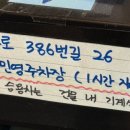 로 386번길 26
민영주차장 (1시간
승용차는 건물 내 기계식